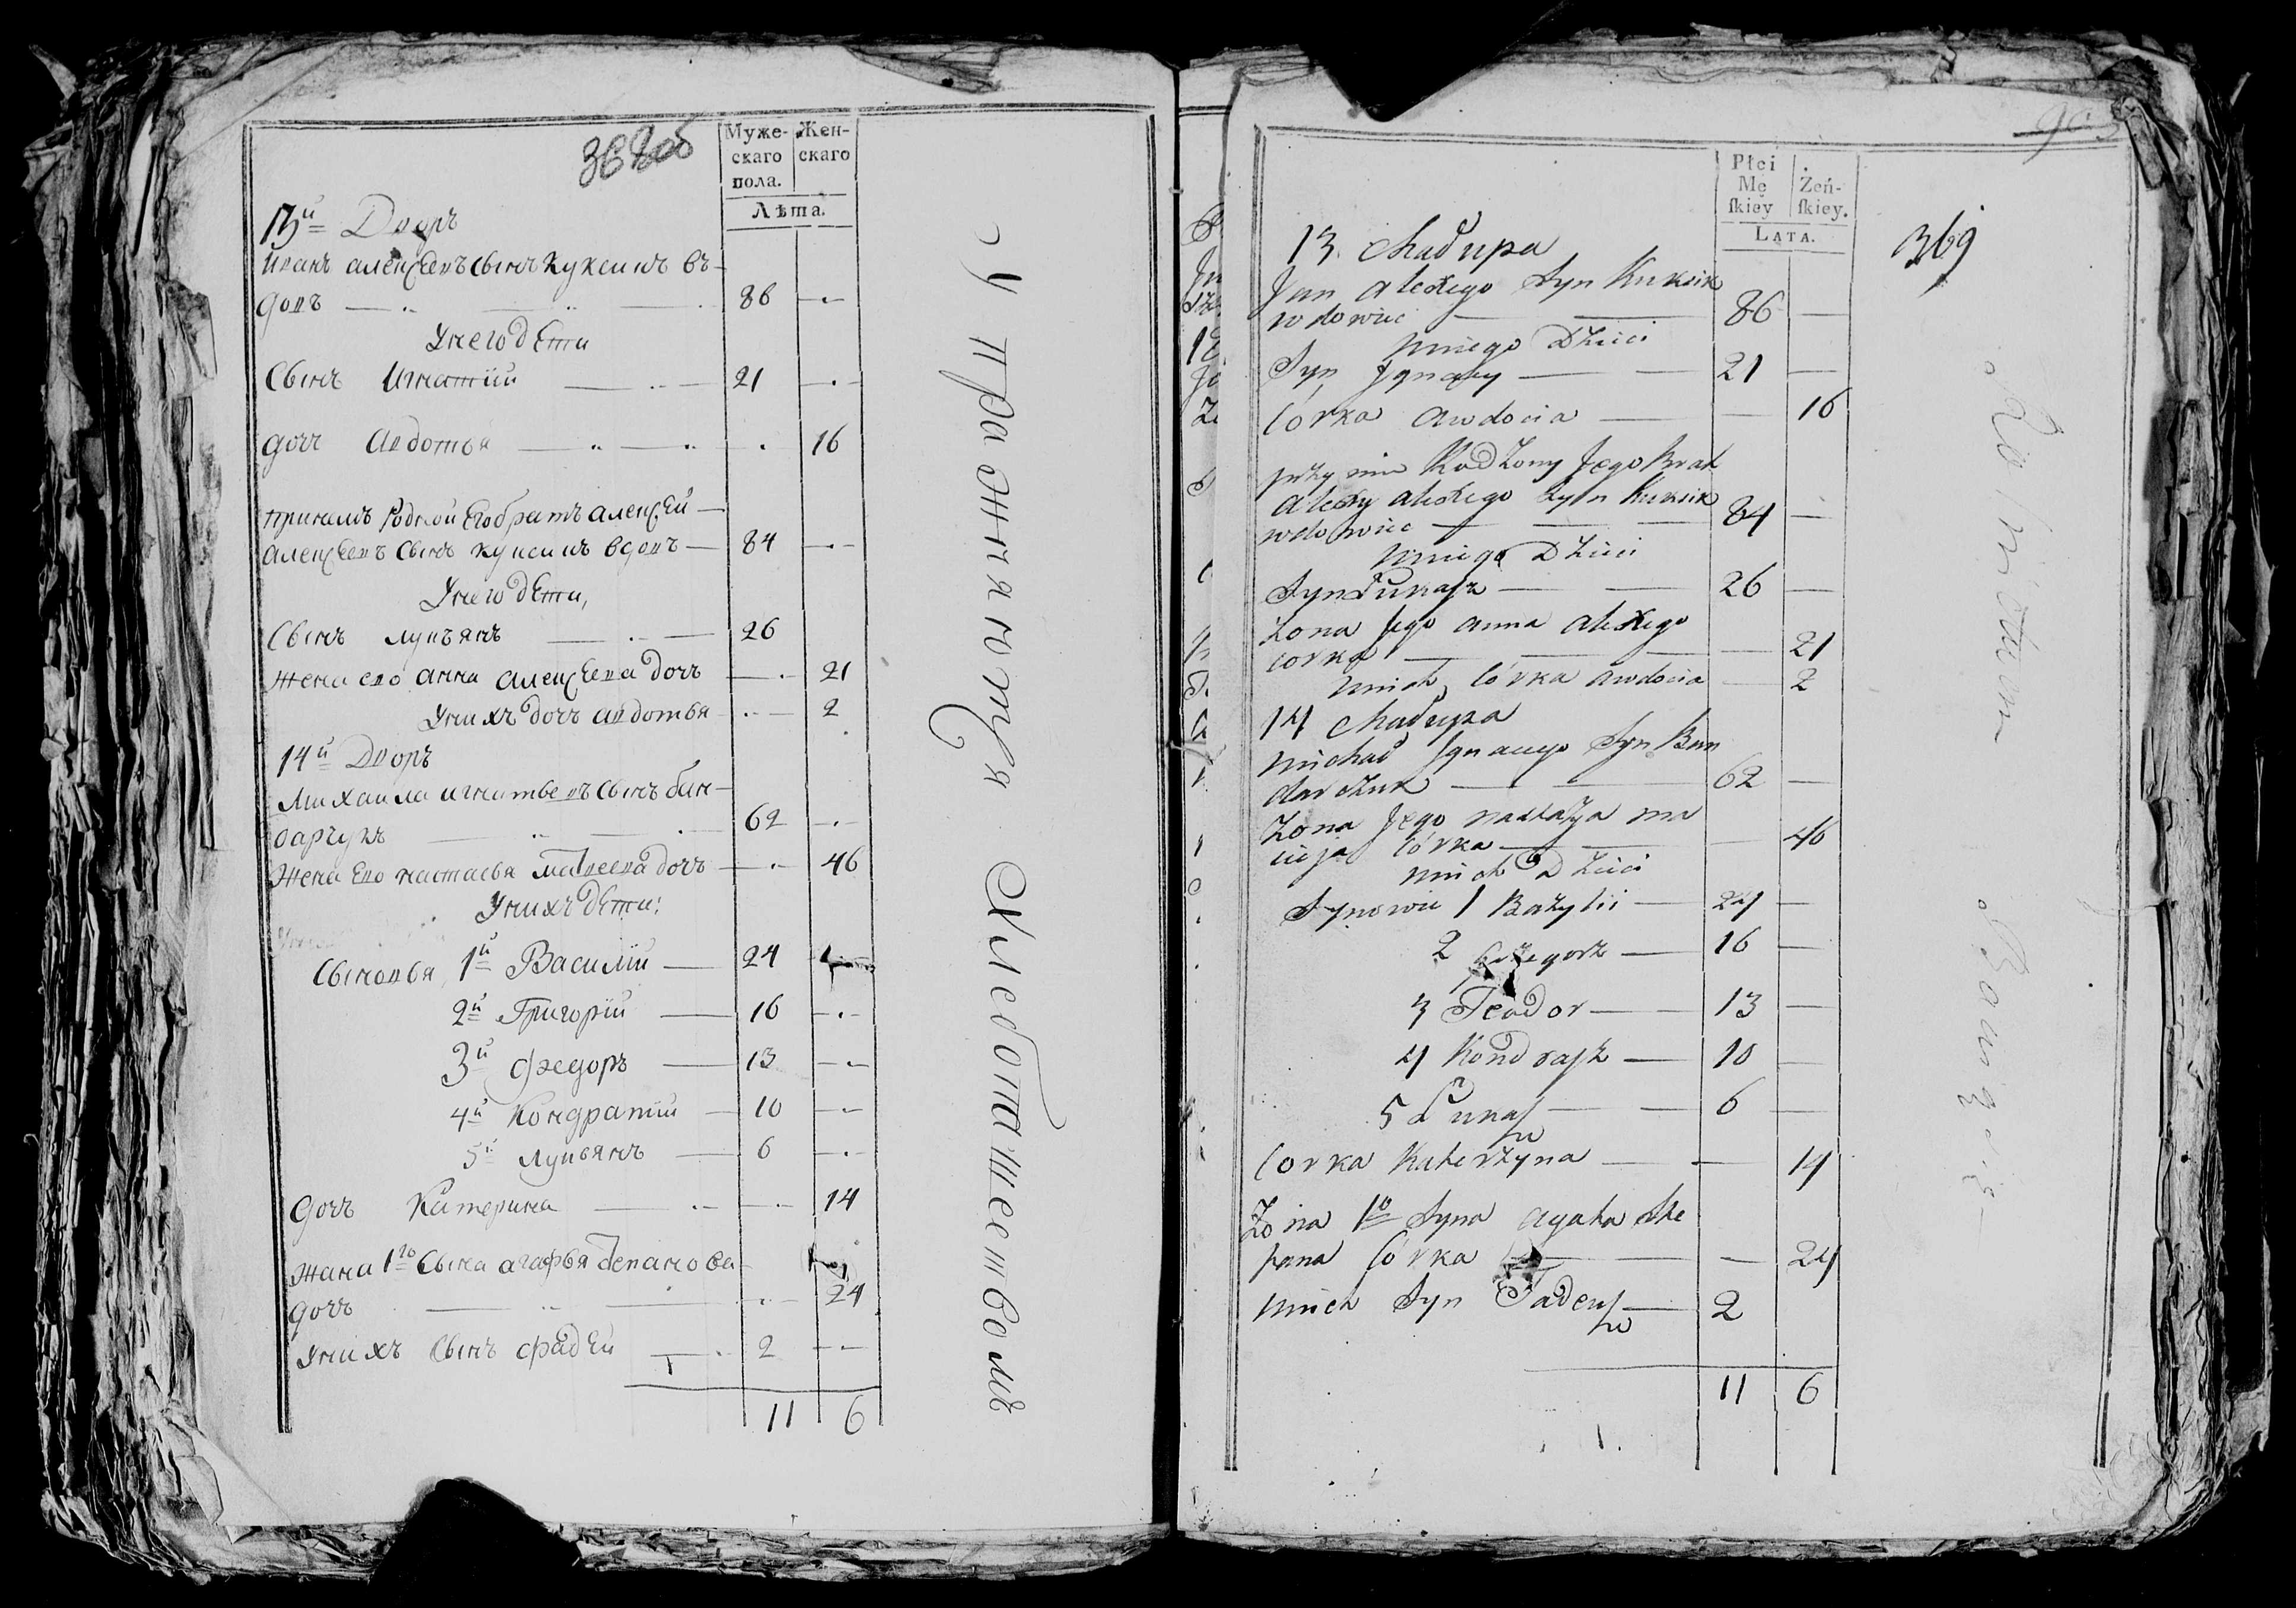 368об
Муже-
скаго
пола.
Жен-
скаго
Лѣта.
13й Дворъ
Иванъ алексѣевъ Сынъ куксикъ въ-
довъ — 86 —
У него дѣти
Сынъ Игнатіи — 21 —
дочь Авдотья — 16
при немъ Родной Его братъ алексѣй —
алексѣевъ Сынъ куксикъ вдовъ — 84 —
У него дѣти,
Сынъ лукъянъ — 26
жена его анна алексѣева дочь — 21
У нихъ дочь авдотья — 2
14й Дворъ
Михаила игнатьевъ Сынъ бон-
дарчукъ — 62 —
Жена Его настасья матвеева дочь — 46
У нихъ дѣти:
Сыновья 1й Василіи — 24
2й Григоріи — 16 —
3й федоръ — 13 —
4й Кондратіи — 10 —
5й лукьянъ — 6 —
дочь Катерина — 14
жена 1го Сына агафья степанова
дочь — 24
У нихъ Сынъ фадѣй — 2 —
11 6
Упражняются Хлебопашеством
369
Płci
Mę
skiey
Żeń-
skiey.
LATA.
13. Chałupa
Jan alexego Syn Kuksik
wdowiec — 86 —
U niego Dzieci
Syn Ignacy — 21 —
Córka Awdocia — 16
przy nim Rodzony Jego Brat
alexy alexego Syn Kuksik
wdowiec — 84 —
U niego Dzieci
Syn Łukasz — 26 —
Zona Jego anna alexego
corka — 21
U nich Córka awdocia — 2
14 Chałupa
Michał Ignacego Syn Bon
darczuk — 62 —
Zona Jego nastazya Ma
cieja Córka — 46
U nich Dzieci
Synowie 1 Bazylii — 24 —
2 Grzegorz — 16 —
3 Teodor — 13 —
4 Kondrasz — 10 —
5 Łukasz — 6 —
Corka Katerzyna — 14
Zona 1o Syna agata Ste
pana Córka — 24
U nich Syn Tadeusz — 2
11 6